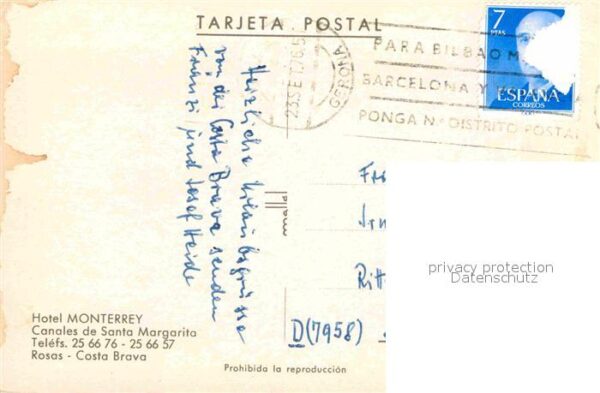 TARJETA POSTAL
7
PTAS
ESPAÑA
CORREOS
23 SE
GERONA
PARA BILBAO M
BARCELONA Y
PONGA Nº DISTRITO POSTAL
Herzliche Urlaubsgrüsse
von der Costa Brava senden
Fränzi und Josef Heide
Ritt
D (7958)
privacy protection
Datenschutz
Hotel MONTERREY
Canales de Santa Margarita
Teléfs. 25 66 76 - 25 66 57
Rosas - Costa Brava
Prohibida la reproducción